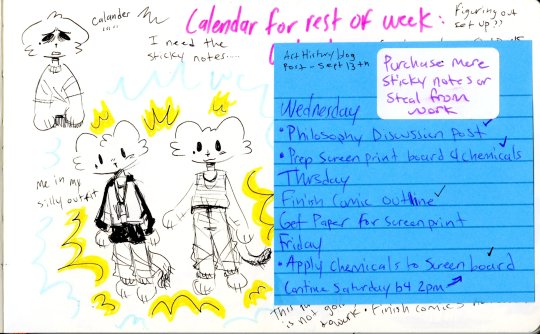 Calander
Calendar for rest of week:
Figuring out
set up??
I need the
sticky notes....
Art History blog
Post - Sept 13th
Purchase more
sticky notes or
steal from
work
Wednesday
• Philosophy Discussion Post ✓
• Prep Screen print board & chemicals ✓
Thursday
Finish Comic outline ✓
Get Paper for screenprint
Friday
• Apply Chemicals to Screen board ✓
Continue Saturday b4 2pm
Me in my
silly outfit
This is
is not goin
• Finish Comics